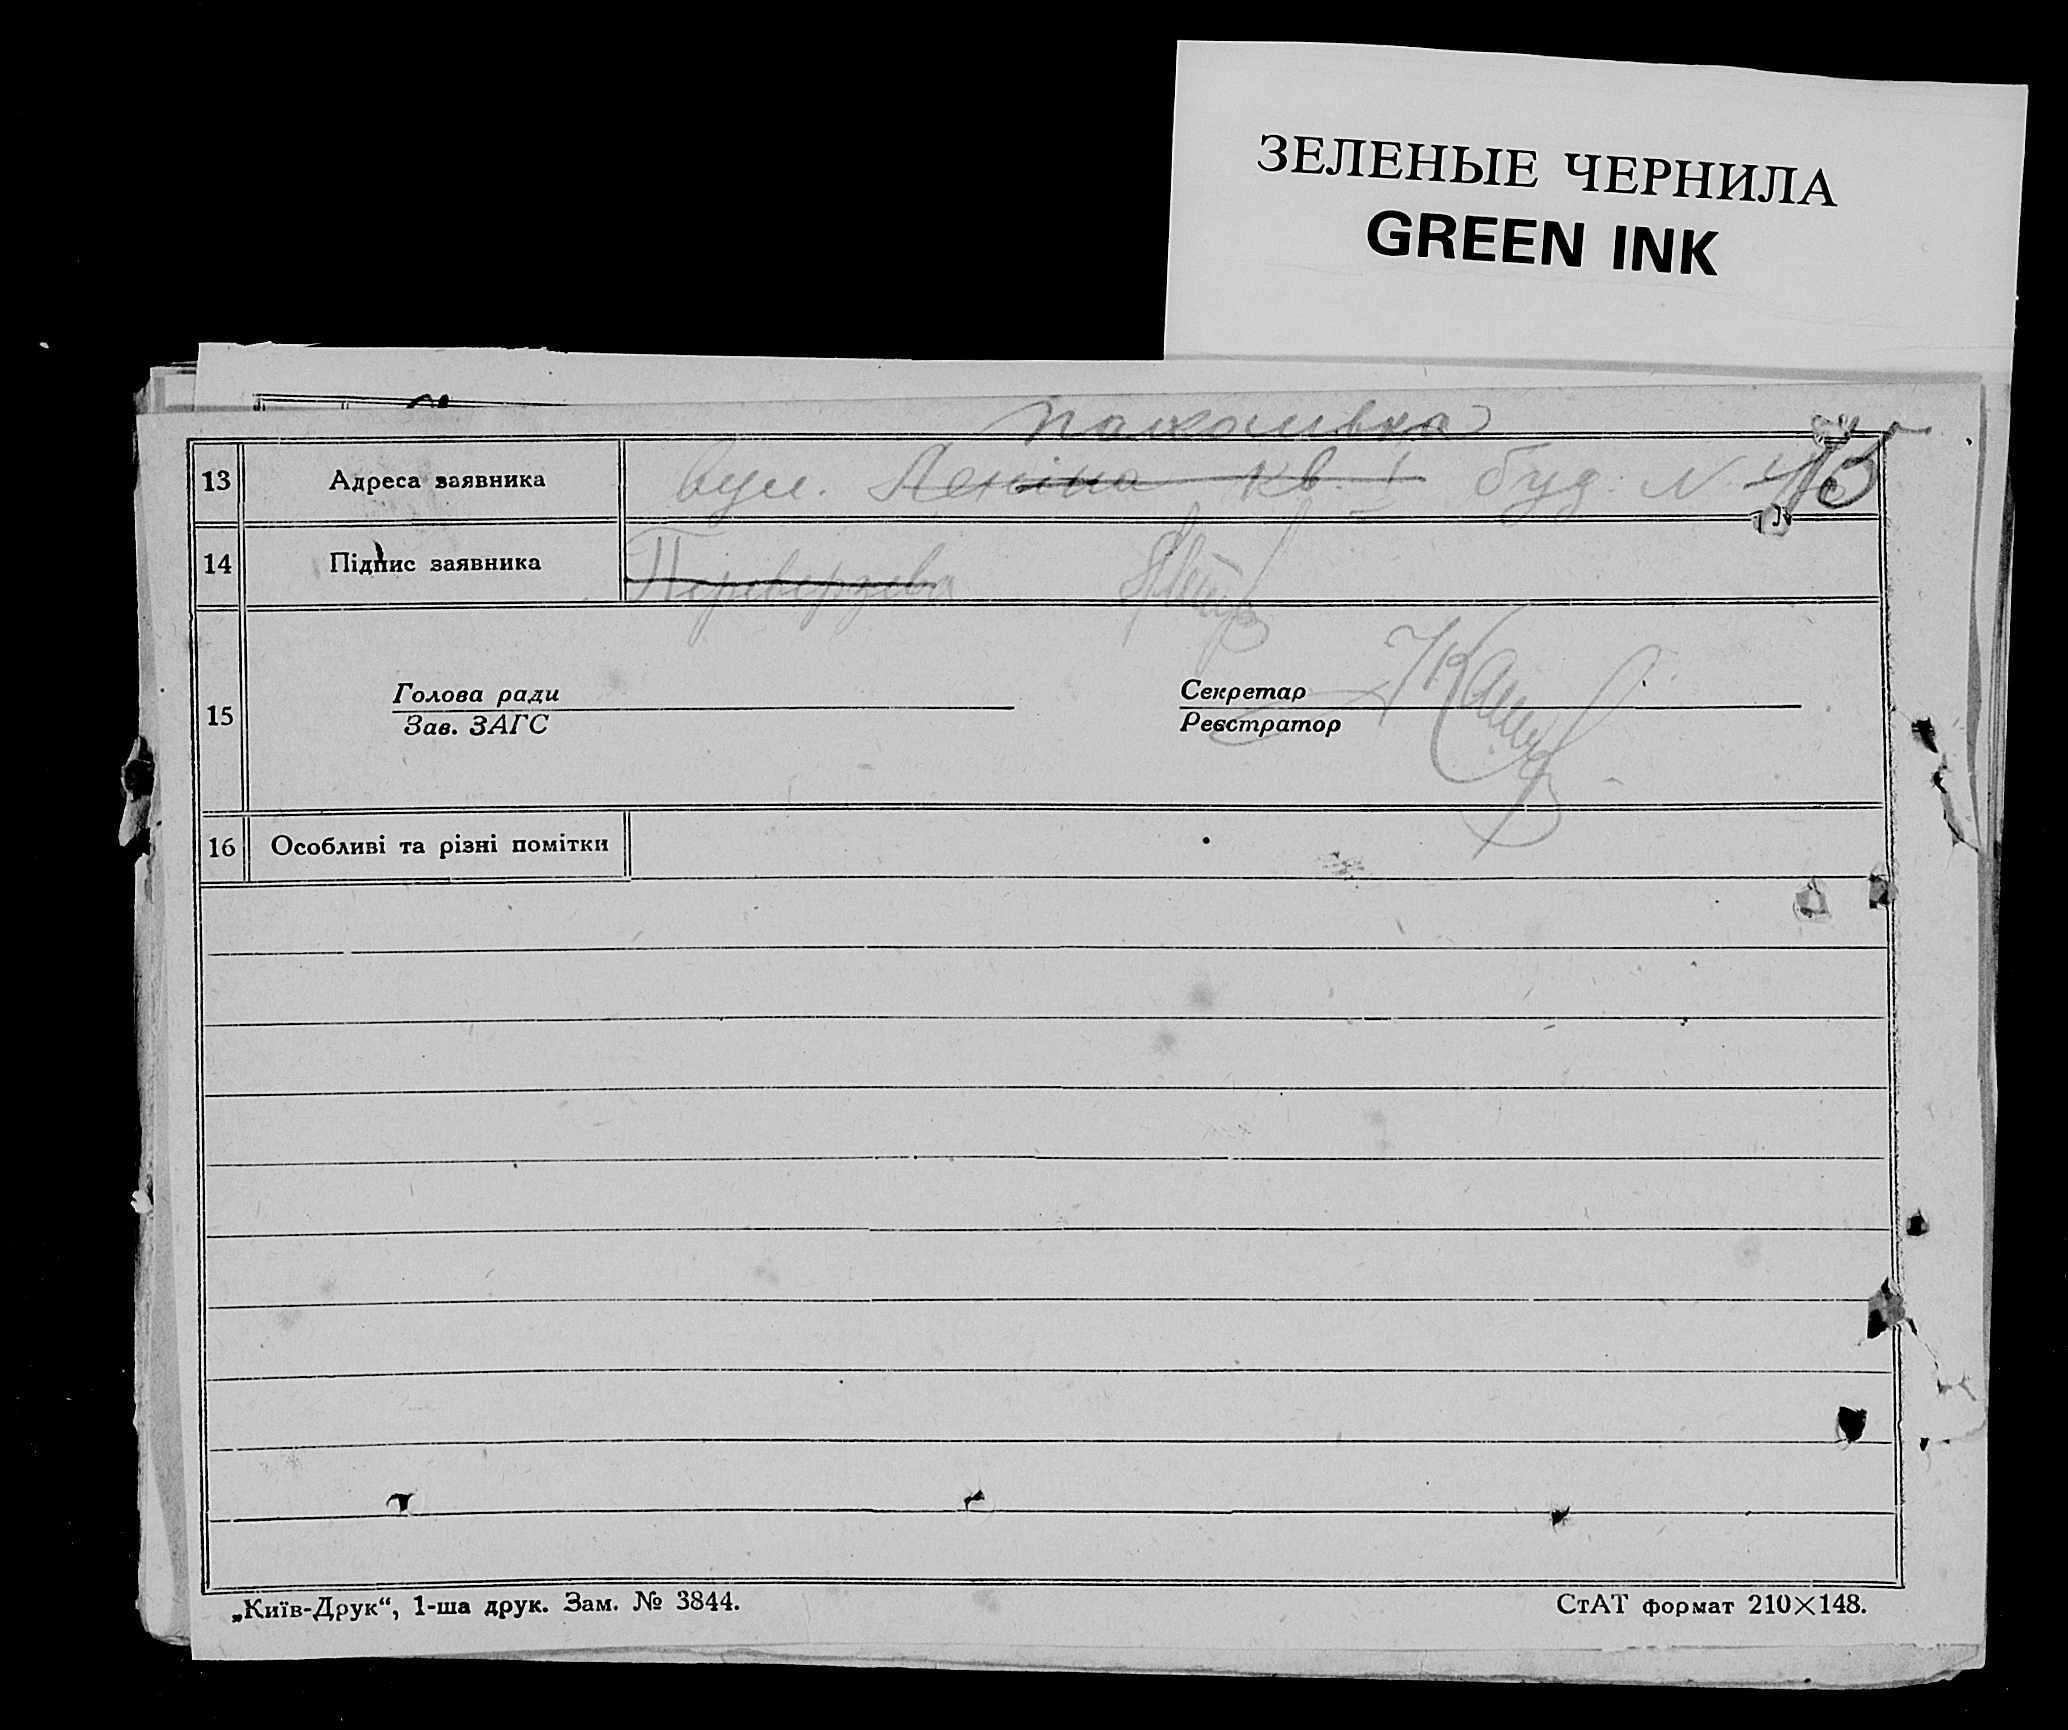 ЗЕЛЕНЫЕ ЧЕРНИЛА
GREEN INK
13 Адреса заявника вул. Леніна кв. 1 буд. N
14 Підпис заявника Переверзева
15 Голова ради Секретар
Зав. ЗАГС Реєстратор
16 Особливі та різні помітки
„Київ-Друк“, 1-ша друк. Зам. № 3844. СтАТ формат 210×148.